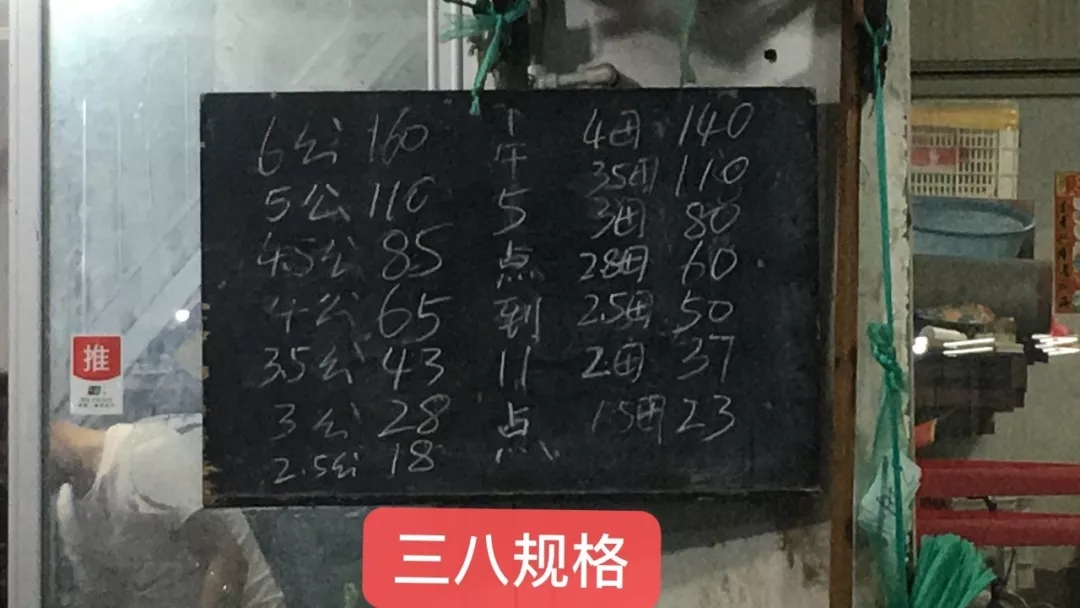 6公 160
5公 110
4.5公 85
4公 65
3.5公 43
3公 28
2.5公 18
下午5点到11点
4母 140
3.5母 110
3母 80
2.8母 60
2.5母 50
2母 37
1.5母 23
推
三八规格